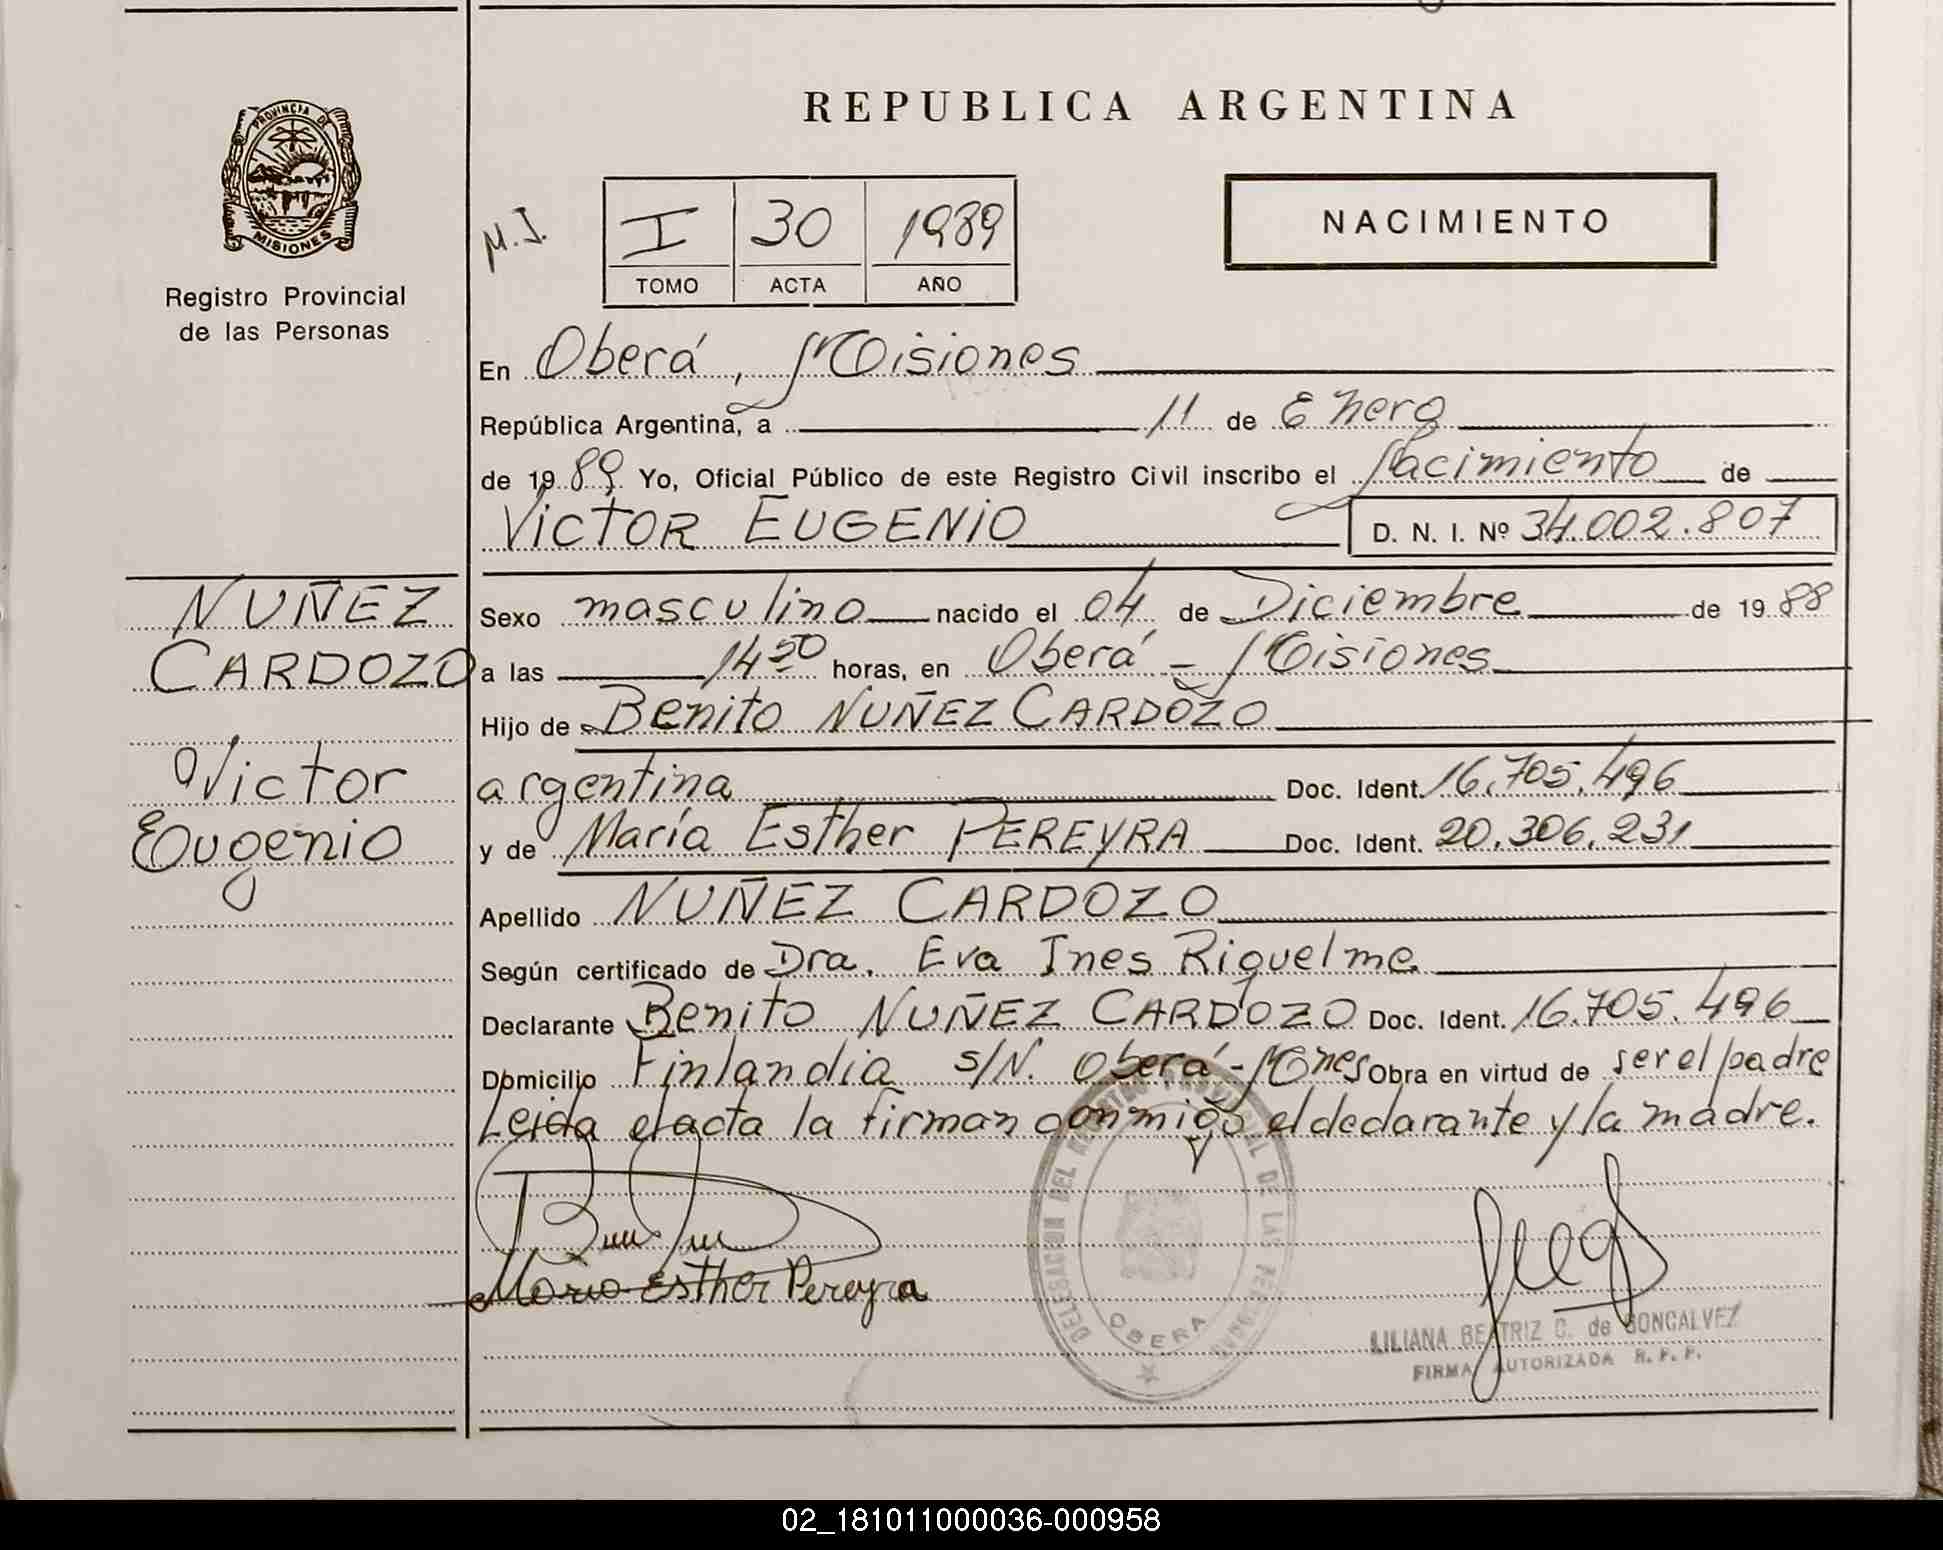 REPUBLICA ARGENTINA
PROVINCIA DE
MISIONES
Registro Provincial
de las Personas
M.I.
I 30 1989
TOMO ACTA AÑO
NACIMIENTO
En Oberá, Misiones
República Argentina, a 11 de Enero
de 1989 Yo, Oficial Público de este Registro Civil inscribo el Nacimiento de
VICTOR EUGENIO D. N. I. Nº 34.002.807
NUÑEZ
CARDOZO
Victor
Eugenio
Sexo masculino nacido el 04 de Diciembre de 1988
a las 14 50 horas, en Oberá - Misiones
Hijo de Benito NUÑEZ CARDOZO
argentina Doc. Ident. 16.705.496
y de María Esther PEREYRA Doc. Ident. 20.306.231
Apellido NUÑEZ CARDOZO
Según certificado de Dra. Eva Ines Riquelme
Declarante Benito NUÑEZ CARDOZO Doc. Ident. 16.705.496
Domicilio Finlandia s/N. Oberá - Mnes Obra en virtud de ser el padre
Leida el acta la firman conmigo el declarante y la madre.
Maria Esther Pereyra
DELEGACION DEL REGISTRO PROVINCIAL DE LAS PERSONAS
OBERA
LILIANA BEATRIZ C. de GONCALVEZ
FIRMA AUTORIZADA R. P. P.
02_181011000036-000958